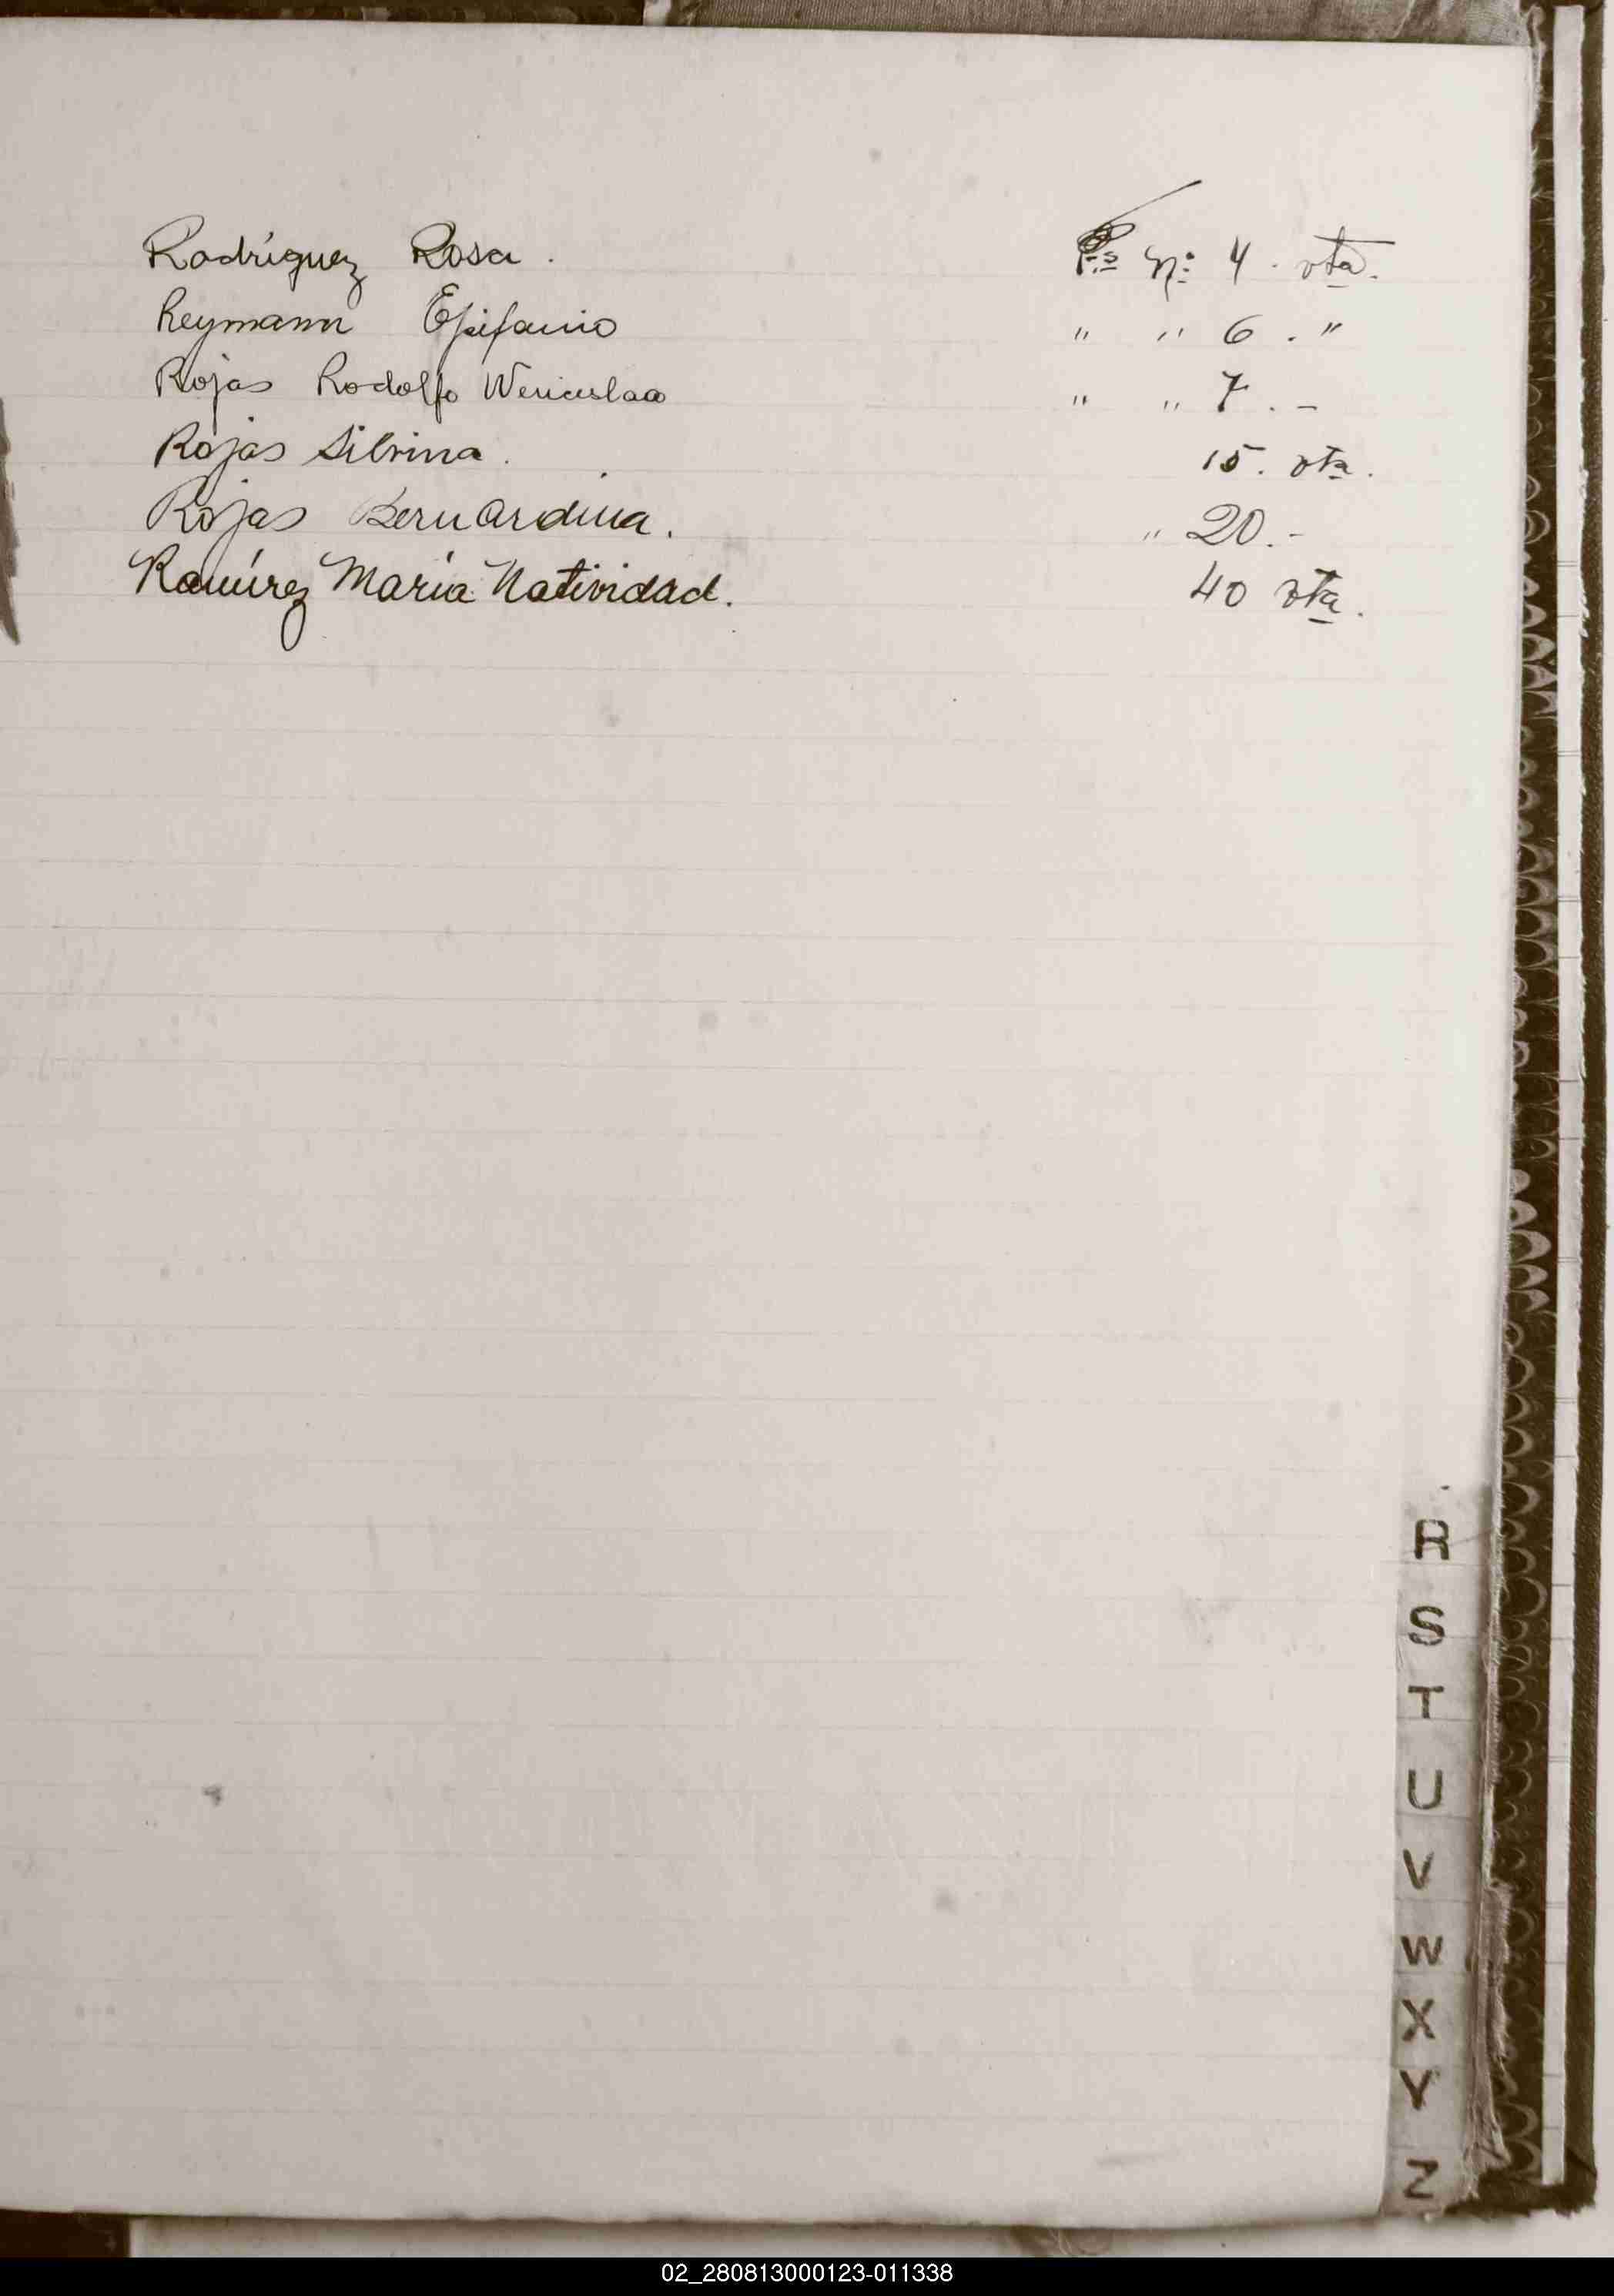 Rodríguez Rosa. Fs Nº 4. vta.
Reymann Epifanio " " 6. "
Rojas Rodolfo Wenceslao " " 7. -
Rojas Silvina. 15. vta.
Rojas Bernardina. " 20. -
Ramírez María Natividad. 40 vta.
R
S
T
U
V
W
X
Y
Z
02_280813000123-011338